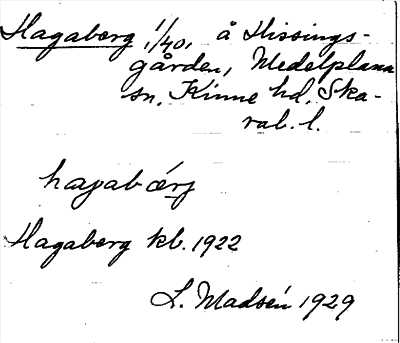 Hagaberg 1/40, å Hissings-
gården, Medelplana
sn, Kinne hd, Ska-
rab. l.
hagabærj
Hagaberg kb. 1922
L. Madsén 1929